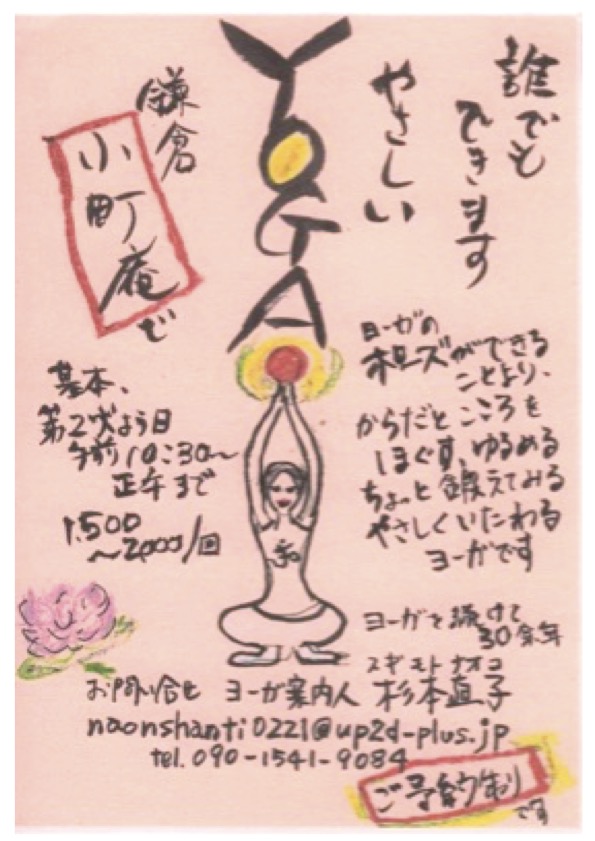 誰でも
できます
やさしい
YOGA
鎌倉
小町庵で
ヨーガの
ポーズができる
ことより、
からだとこころを
ほぐす、ゆるめる
ちょっと鍛えてみる
やさしくいたわる
ヨーガです
基本、
第2火よう日
午前10:30〜
正午まで
1,500
〜2,000/回
ヨーガを続けて
30余年
スギモトナオコ
お問い合せ ヨーガ案内人 杉本直子
naonshanti0221@up2d-plus.jp
tel. 090-1541-9084
ご予約制
です